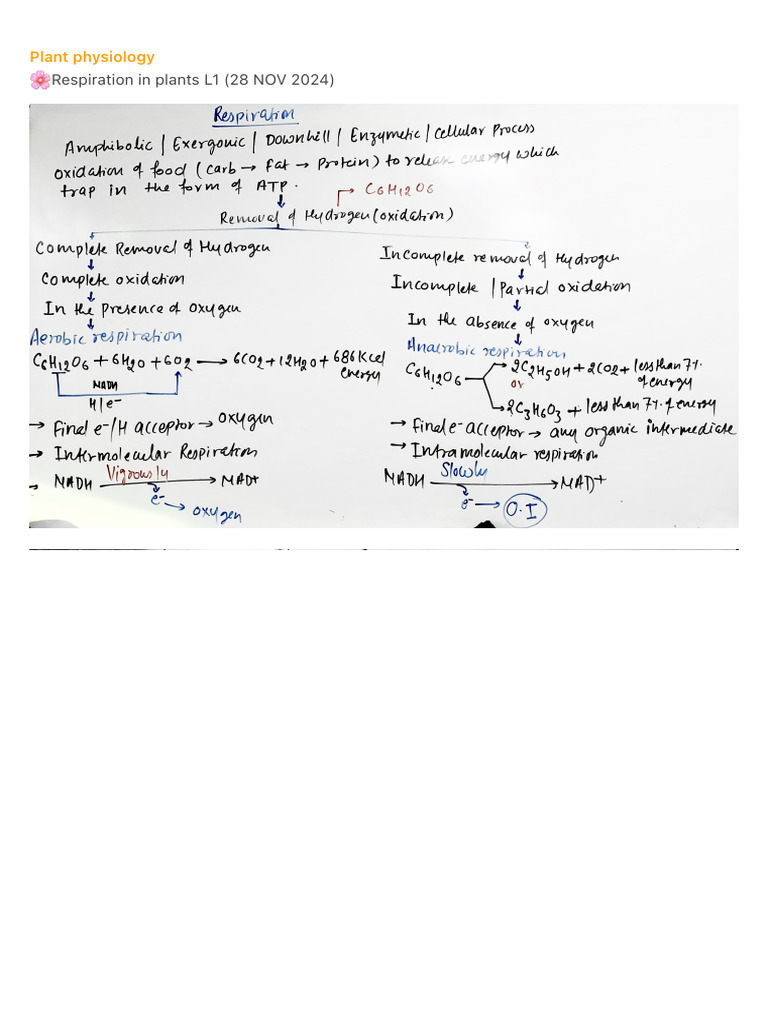 Plant physiology
🌸Respiration in plants L1 (28 NOV 2024)
Respiration
Amphibolic | Exergonic | Downhill | Enzymetic | Cellular Process
oxidation of food (Carb → Fat → Protein) to release energy which
trap in the form of ATP.
→ C6H12O6
Removal of Hydrogen (oxidation)
Complete Removal of Hydrogen
Complete oxidation
In the presence of oxygen
Aerobic respiration
C6H12O6 + 6H2O + 6O2 → 6CO2 + 12H2O + 686 Kcal
energy
NADH
H/e-
→ Final e-/H acceptor → oxygen
→ Intermolecular Respiration
→ NADH Vigrously → NAD+
e- → oxygen
Incomplete removal of Hydrogen
Incomplete | Partial oxidation
In the absence of oxygen
Anaerobic respiration
C6H12O6 → 2C2H5OH + 2CO2 + less than 7%
of energy
or
→ 2C3H6O3 + less than 7% of energy
→ Final e- acceptor → any organic intermediate
→ Intramolecular respiration
NADH Slowly → NAD+
e- → O.I